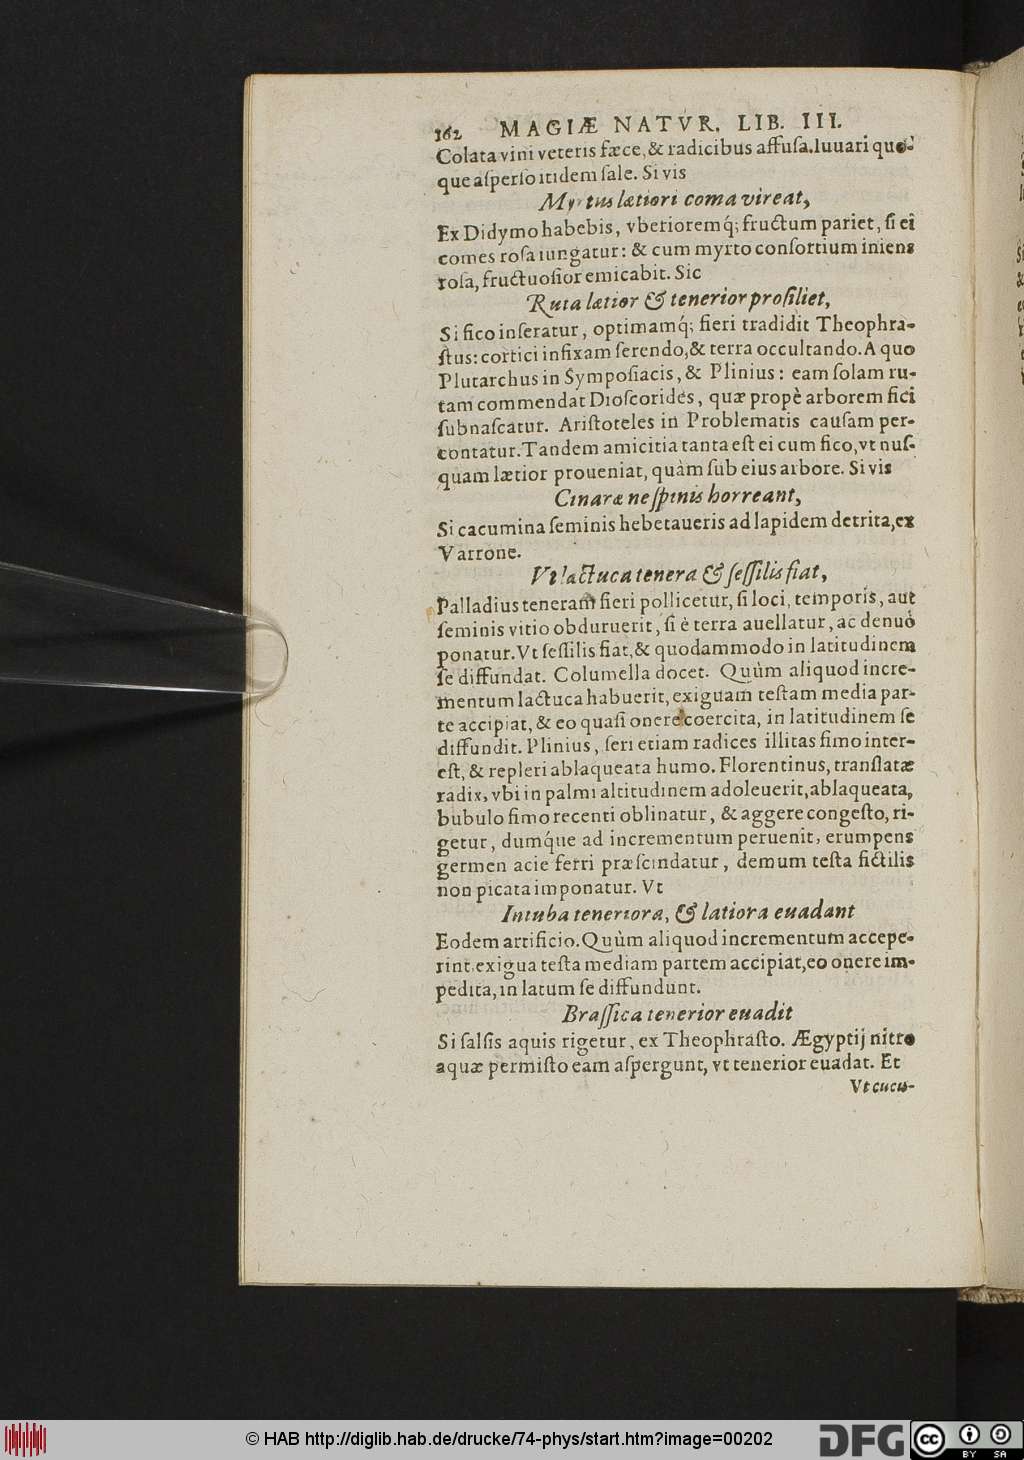 162 MAGIÆ NATVR. LIB. III.
Colata vini veteris fæce, & radicibus affuſa. Iuvari quo-
que aſperſo itidem ſale. Si vis
Myrtus lætiori coma vireat,
Ex Didymo habebis, vberioremq́; fructum pariet, ſi ei
comes roſa iungatur: & cum myrto conſortium iniens
roſa, fructuoſior emicabit. Sic
Ruta lætior & tenerior proſiliet,
Si fico inſeratur, optimamq́; fieri tradidit Theophra-
ſtus: cortici infixam ſerendo, & terra occultando. A quo
Plutarchus in Sympoſiacis, & Plinius: eam ſolam ru-
tam commendat Dioſcorides, quæ propè arborem fici
ſubnaſcatur. Ariſtoteles in Problematis cauſam per-
contatur. Tandem amicitia tanta eſt ei cum fico, vt nuſ-
quam lætior proueniat, quàm ſub eius arbore. Si vis
Cinaræ ne ſpinis horreant,
Si cacumina ſeminis hebetaueris ad lapidem detrita, ex
Varrone.
Vt lactuca tenera & ſeſſilis fiat,
Palladius teneram fieri pollicetur, ſi loci, temporis, aut
ſeminis vitio obduruerit, ſi è terra auellatur, ac denuò
ponatur. Vt ſeſſilis fiat, & quodammodo in latitudinem
ſe diffundat. Columella docet. Quùm aliquod incre-
mentum lactuca habuerit, exiguam teſtam media par-
te accipiat, & eo quaſi onere coercita, in latitudinem ſe
diffundit. Plinius, ſeri etiam radices illitas fimo inter-
eſt, & repleri ablaqueata humo. Florentinus, tranſlatæ
radix, vbi in palmi altitudinem adoleuerit, ablaqueata,
bubulo fimo recenti oblinatur, & aggere congeſto, ri-
getur, dumq́ue ad incrementum peruenit, erumpens
germen acie ferri præſcindatur, demum teſta fictilis
non picata imponatur. Vt
Intuba teneriora, & latiora euadant
Eodem artificio. Quùm aliquod incrementum accepe-
rint, exigua teſta mediam partem accipiat, eo onere im-
pedita, in latum ſe diffundunt.
Braſſica tenerior euadit
Si ſalſis aquis rigetur, ex Theophraſto. Ægyptij nitro
aquæ permiſto eam aſpergunt, vt tenerior euadat. Et
Vt cucu-
© HAB http://diglib.hab.de/drucke/74-phys/start.htm?image=00202
DFG
cc BY SA